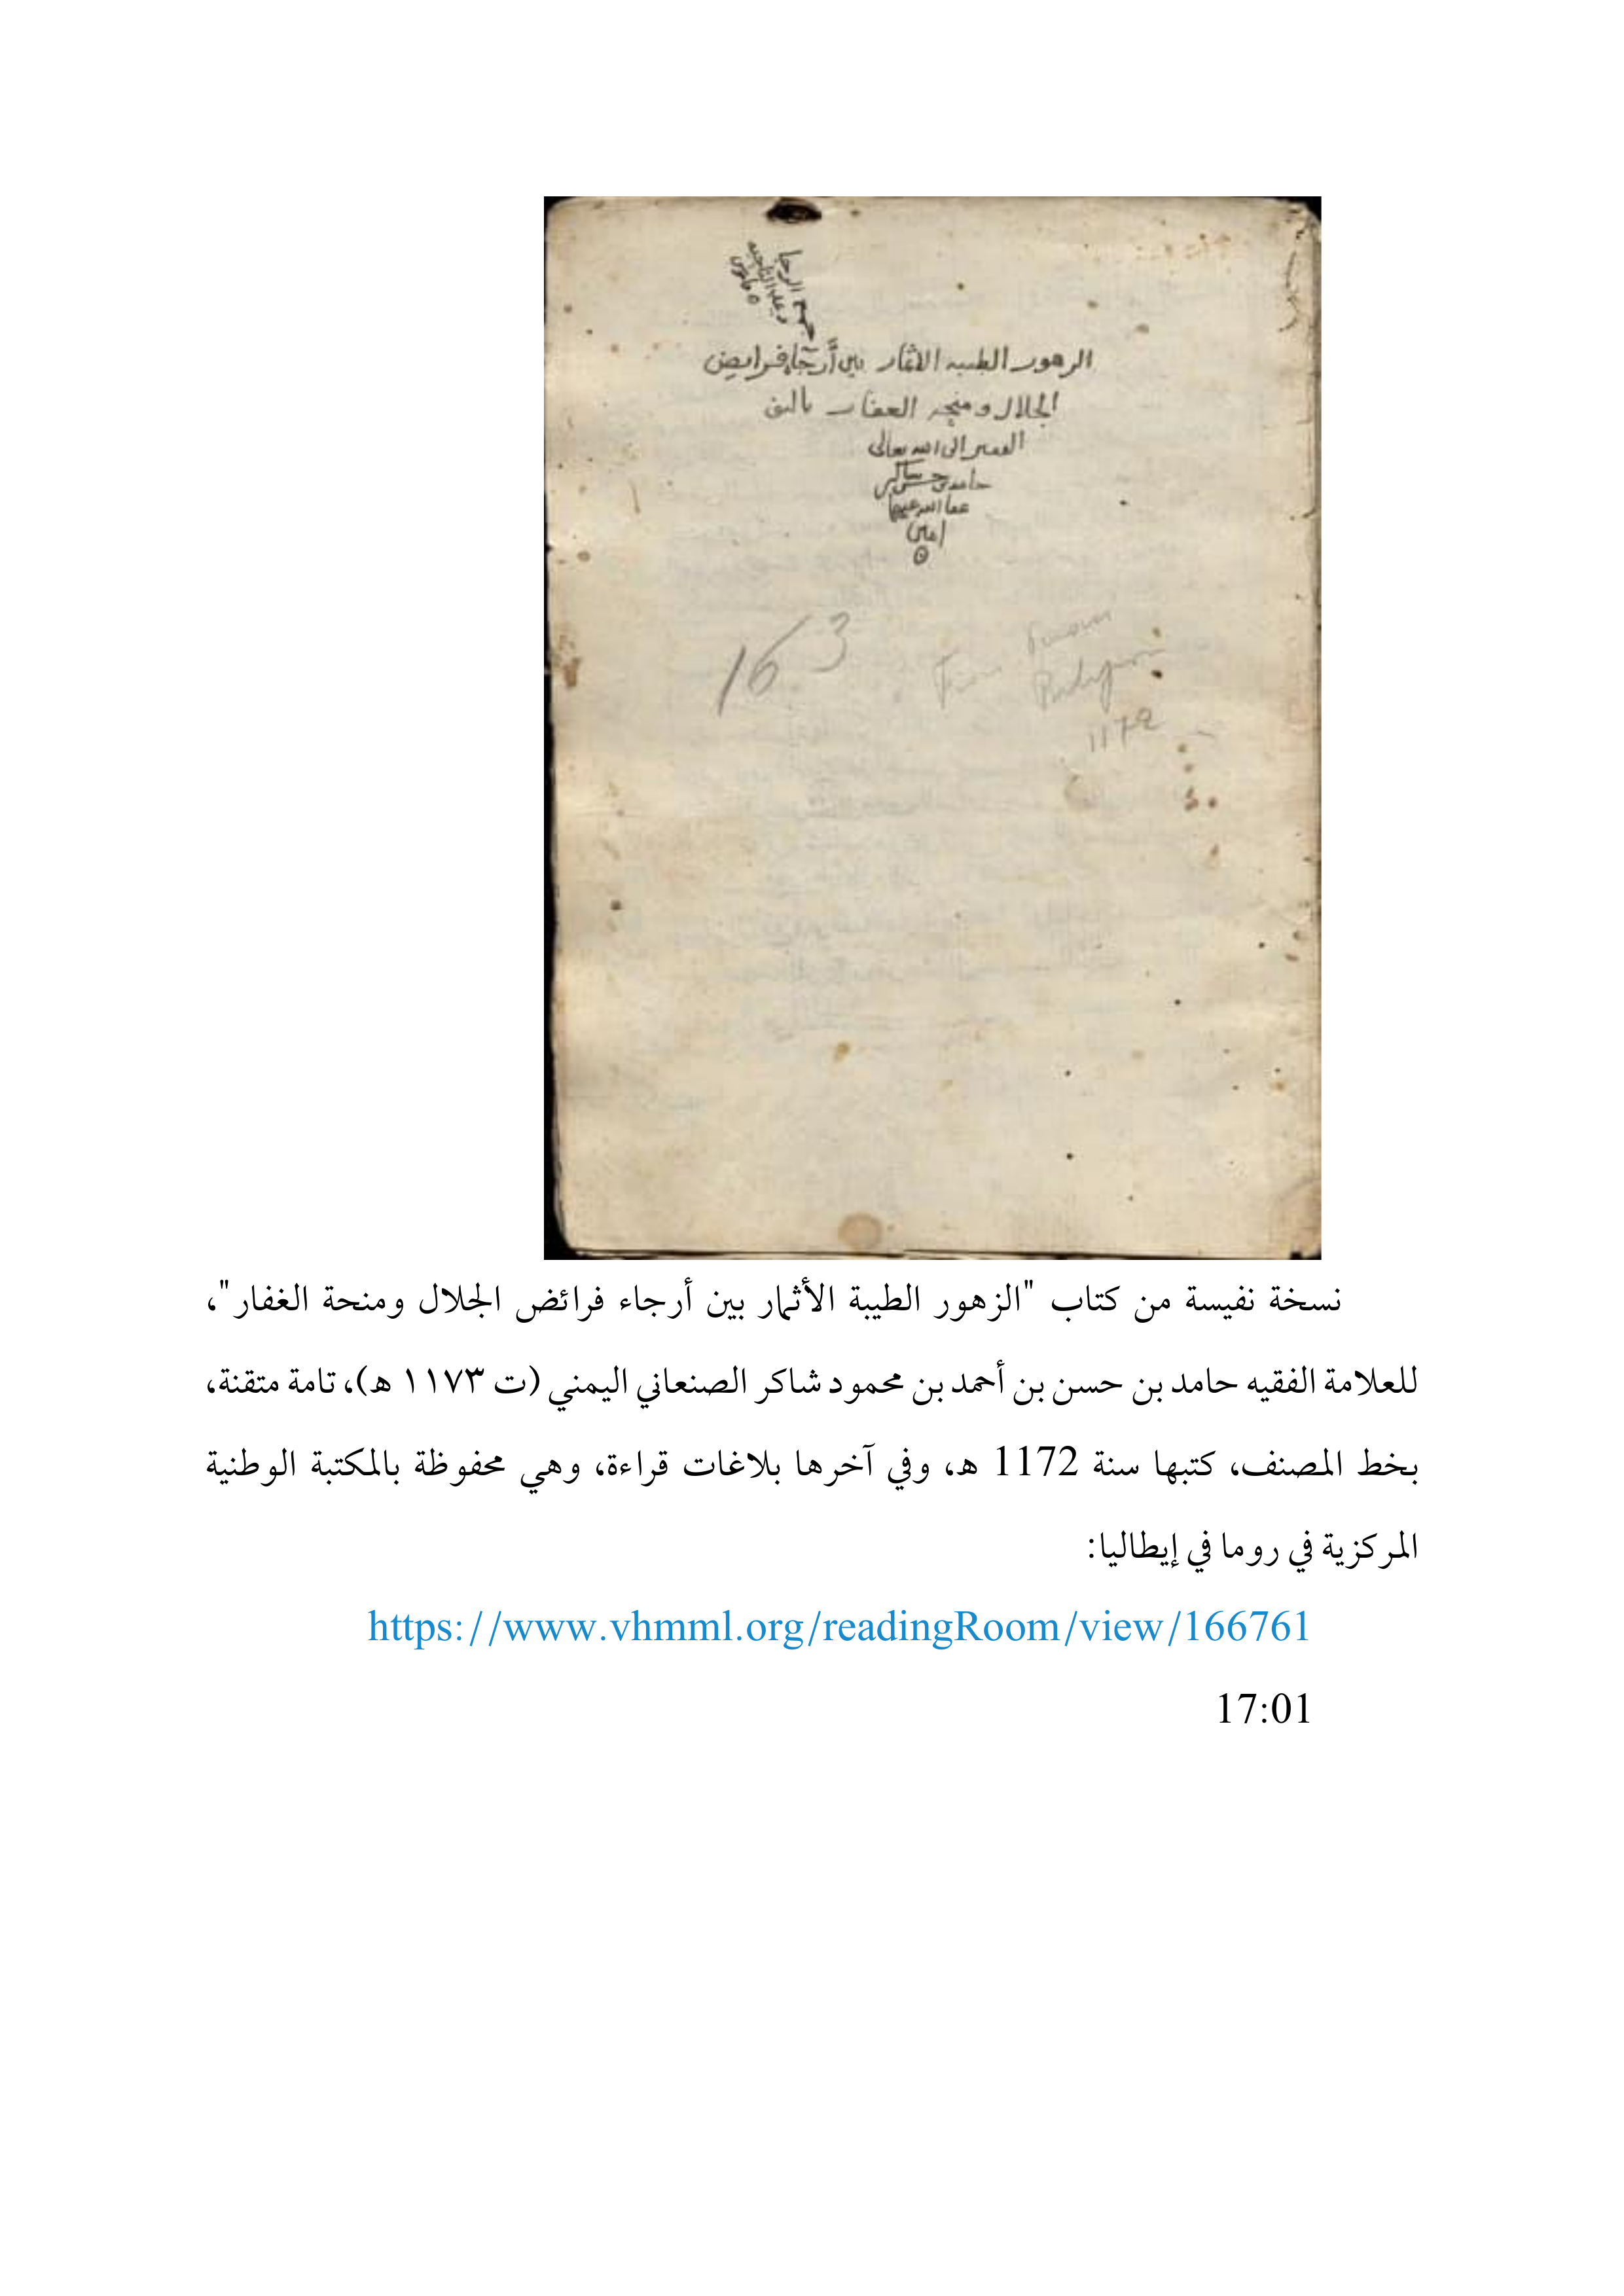 جمع الرجا
الزهور الطيبه الاثمار بين أرجآء فرايض
الجلال ومنحه الغفار تاليف
الفقير الى الله تعالى
حامد بن حسن شاكر
عفا الله عنهما
امين
163
1172
نسخة نفيسة من كتاب "الزهور الطيبة الأثمار بين أرجاء فرائض الجلال ومنحة الغفار"،
للعلامة الفقيه حامد بن حسن بن أحمد بن محمود شاكر الصنعاني اليمني (ت ١١٧٣ هـ)، تامة متقنة،
بخط المصنف، كتبها سنة 1172 هـ، وفي آخرها بلاغات قراءة، وهي محفوظة بالمكتبة الوطنية
المركزية في روما في إيطاليا:
https://www.vhmml.org/readingRoom/view/166761
17:01